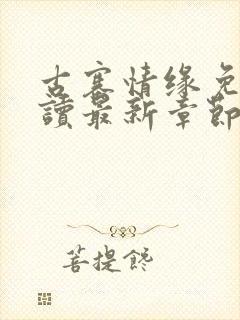 古寨情缘免
讀最新章節
菩提馋